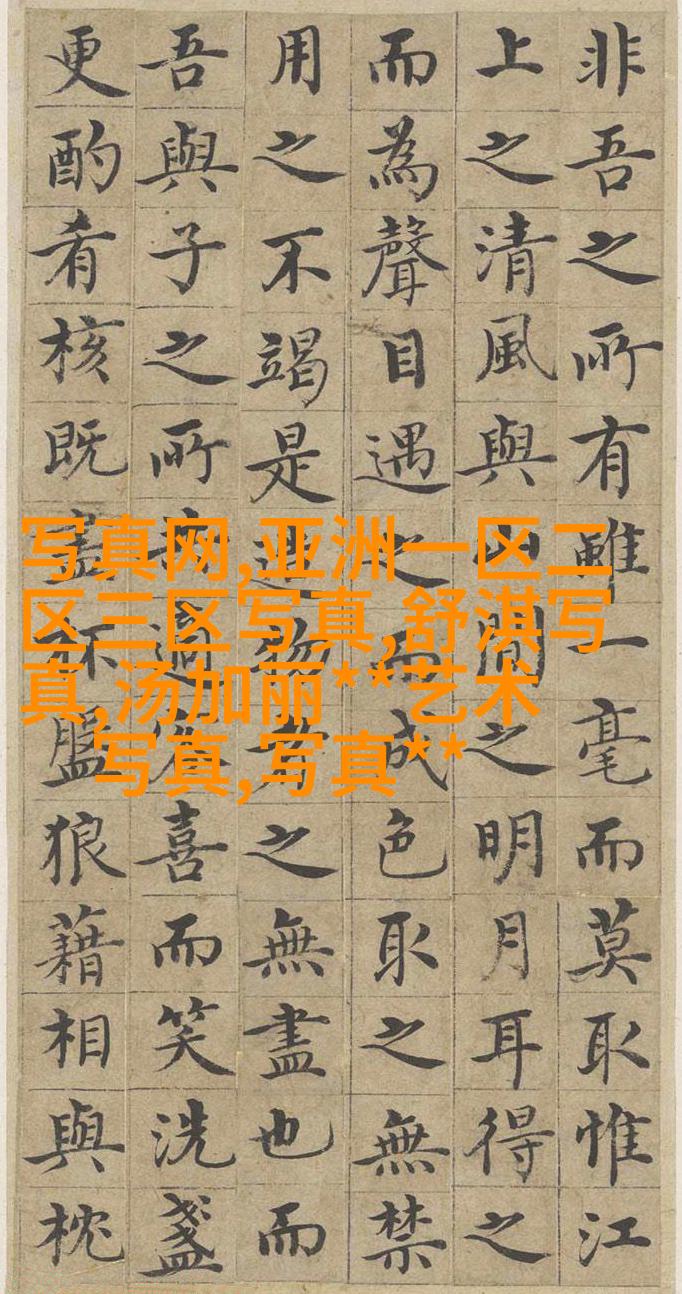 非吾之所有雖一毫而莫取惟江
上之清風與山間之明月耳得之
而為聲目遇之而成色取之無禁
用之不竭是造物者之無盡也而
吾與子之所適客喜而笑洗盞
更酌肴核既盡杯盤狼藉相與枕
写真网,亚洲一区二
区三区写真,舒淇写
真,汤加丽**艺术
写真,写真**